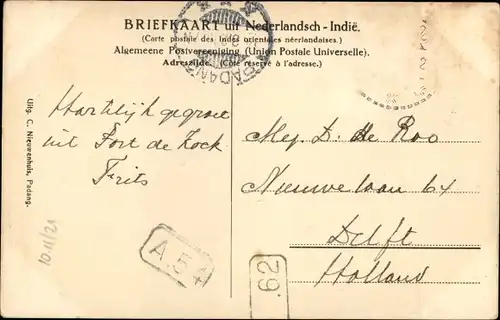 BRIEFKAART uit Nederlandsch-Indië.
(Carte postale des Indes orientales néerlandaises.)
Algemeene Postvereeniging (Union Postale Universelle).
Adreszijde. (Côté réservé à l'adresse.)
PADANG
Hartelijk gegroet
uit Fort de Kock
Frits
Mej. D. de Roo
Nieuwe laan 64
Delft
Holland
Uitg. C. Nieuwenhuis, Padang.
10.11/21
A 54
62